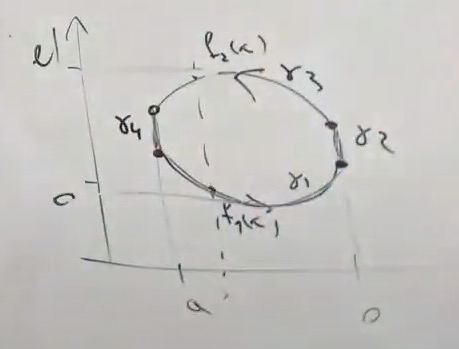 d
f₂(x)
γ₃
γ₄
γ₂
γ₁
c
f₁(x)
a